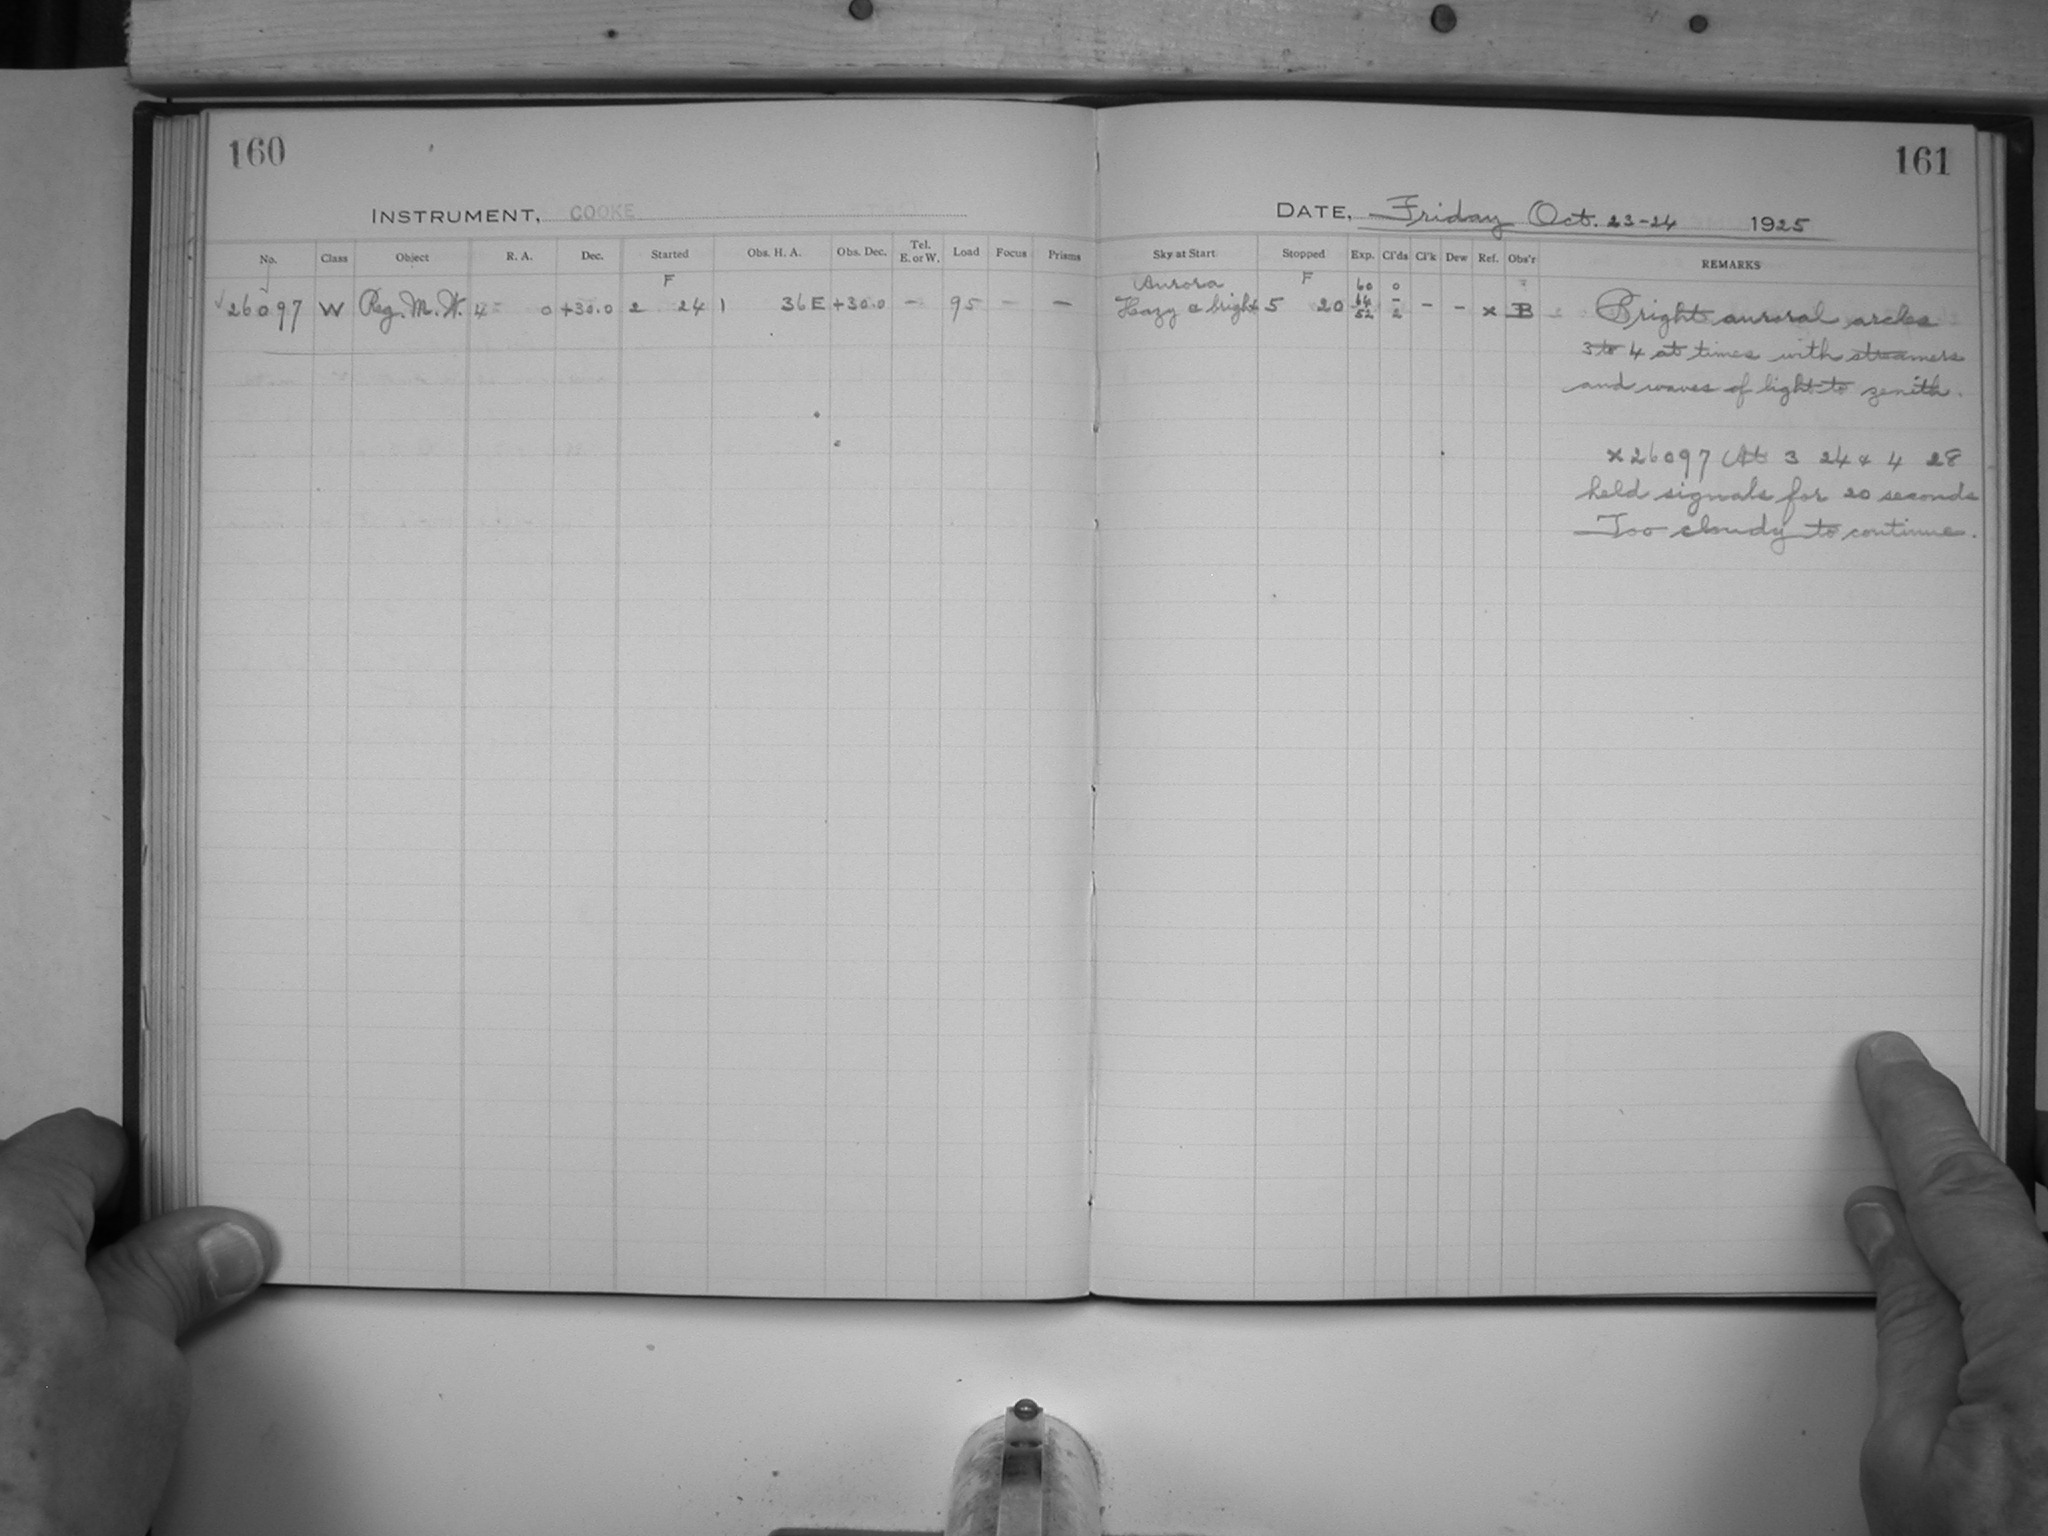 160
161
INSTRUMENT, COOKE
DATE, Friday Oct. 23-24 1925
No. Class Object R. A. Dec. Started Obs. H. A. Obs. Dec. Tel. E. or W. Load Focus Prisms Sky at Start Stopped Exp. Cl'ds Cl'k Dew Ref. Obs'r REMARKS
F Aurora F 60 0
26097 W Reg. M. W. 4 0 +30.0 2 24 1 36 E +30.0 - 95 - - Hazy & bright 5 20 64 - - - x B Bright auroral arches
52 2
3 to 4 at times with streamers
and waves of light to zenith.
x 26097 At 3 24 & 4 28
held signals for 20 seconds
Too cloudy to continue.